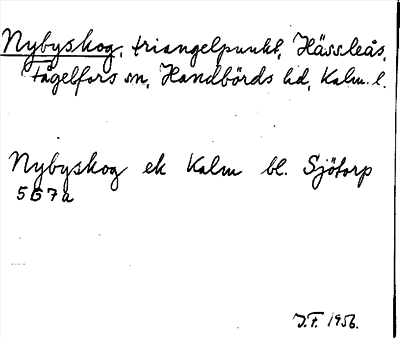 Nybyskog, triangelpunkt, Hässleås,
Fågelfors sn, Handbörds hd, Kalm. l.
Nybyskog ek Kalm bl. Sjötorp
5G7a
J.F. 1956.